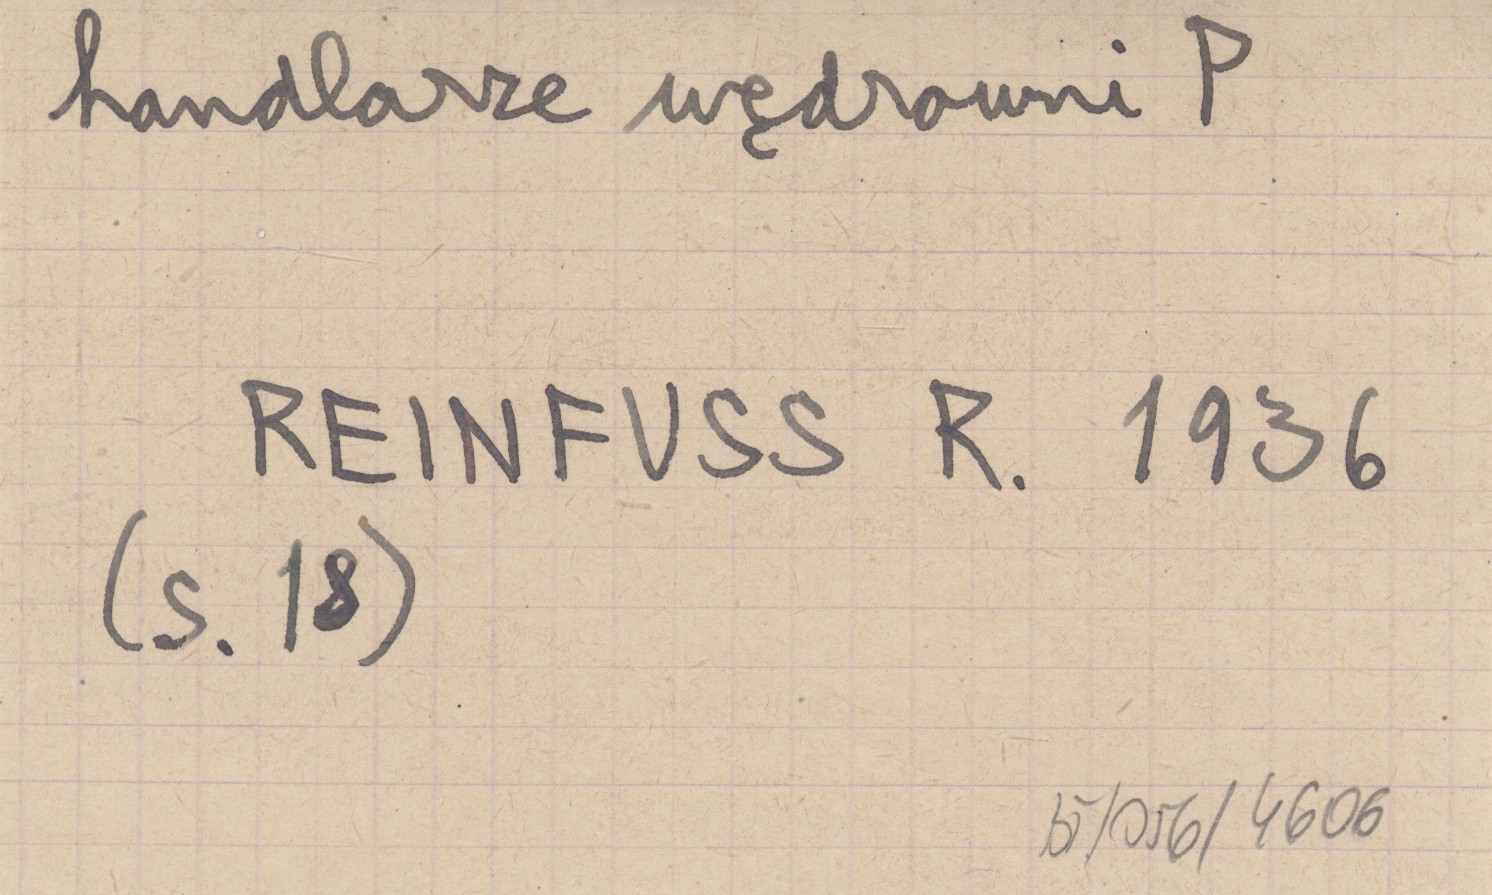 handlarze wędrowni P
REINFUSS R. 1936
(s. 18)
4606